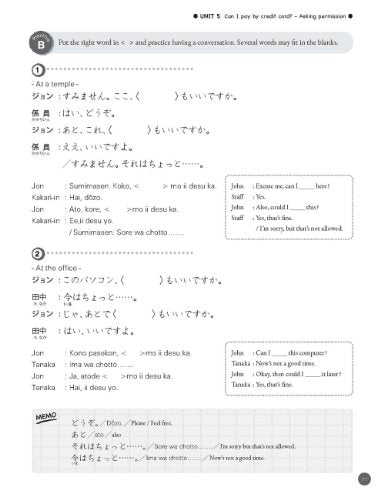 ● UNIT 5 Can I pay by credit card? – Asking permission ●
practice
B
Put the right word in < > and practice having a conversation. Several words may fit in the blanks.
1
- At a temple -
ジョン：すみません。ここ、〈 〉もいいですか。
係員：はい、どうぞ。
かかりいん
ジョン：あと、これ、〈 〉もいいですか。
係員：ええ、いいですよ。
かかりいん
／すみません。それはちょっと……。
Jon : Sumimasen. Koko, < > mo ii desu ka.
Kakari-in : Hai, dōzo.
Jon : Ato, kore, < > mo ii desu ka.
Kakari-in : Ee,ii desu yo.
/ Sumimasen. Sore wa chotto…….
John : Excuse me, can I ____ here?
Staff : Yes.
John : Also, could I ____ this?
Staff : Yes, that's fine.
/ I'm sorry, but that's not allowed.
2
- At the office -
ジョン：このパソコン、〈 〉もいいですか。
田中：今はちょっと……。
たなか いま
ジョン：じゃ、あとで〈 〉もいいですか。
田中：はい、いいですよ。
たなか
Jon : Kono pasokon, < >mo ii desu ka.
Tanaka : Ima wa chotto…….
Jon : Ja, atode < >mo ii desu ka.
Tanaka : Hai, ii desu yo.
John : Can I ____ this computer?
Tanaka : Now's not a good time.
John : Okay, then could I ____ it later?
Tanaka : Yes, that's fine.
MEMO
どうぞ。／Dōzo.／Please / Feel free.
あと／ato／also
それはちょっと……。／Sore wa chotto……./I'm sorry but that's not allowed.
今はちょっと……。／Ima wa chotto……./Now's not a good time.
いま